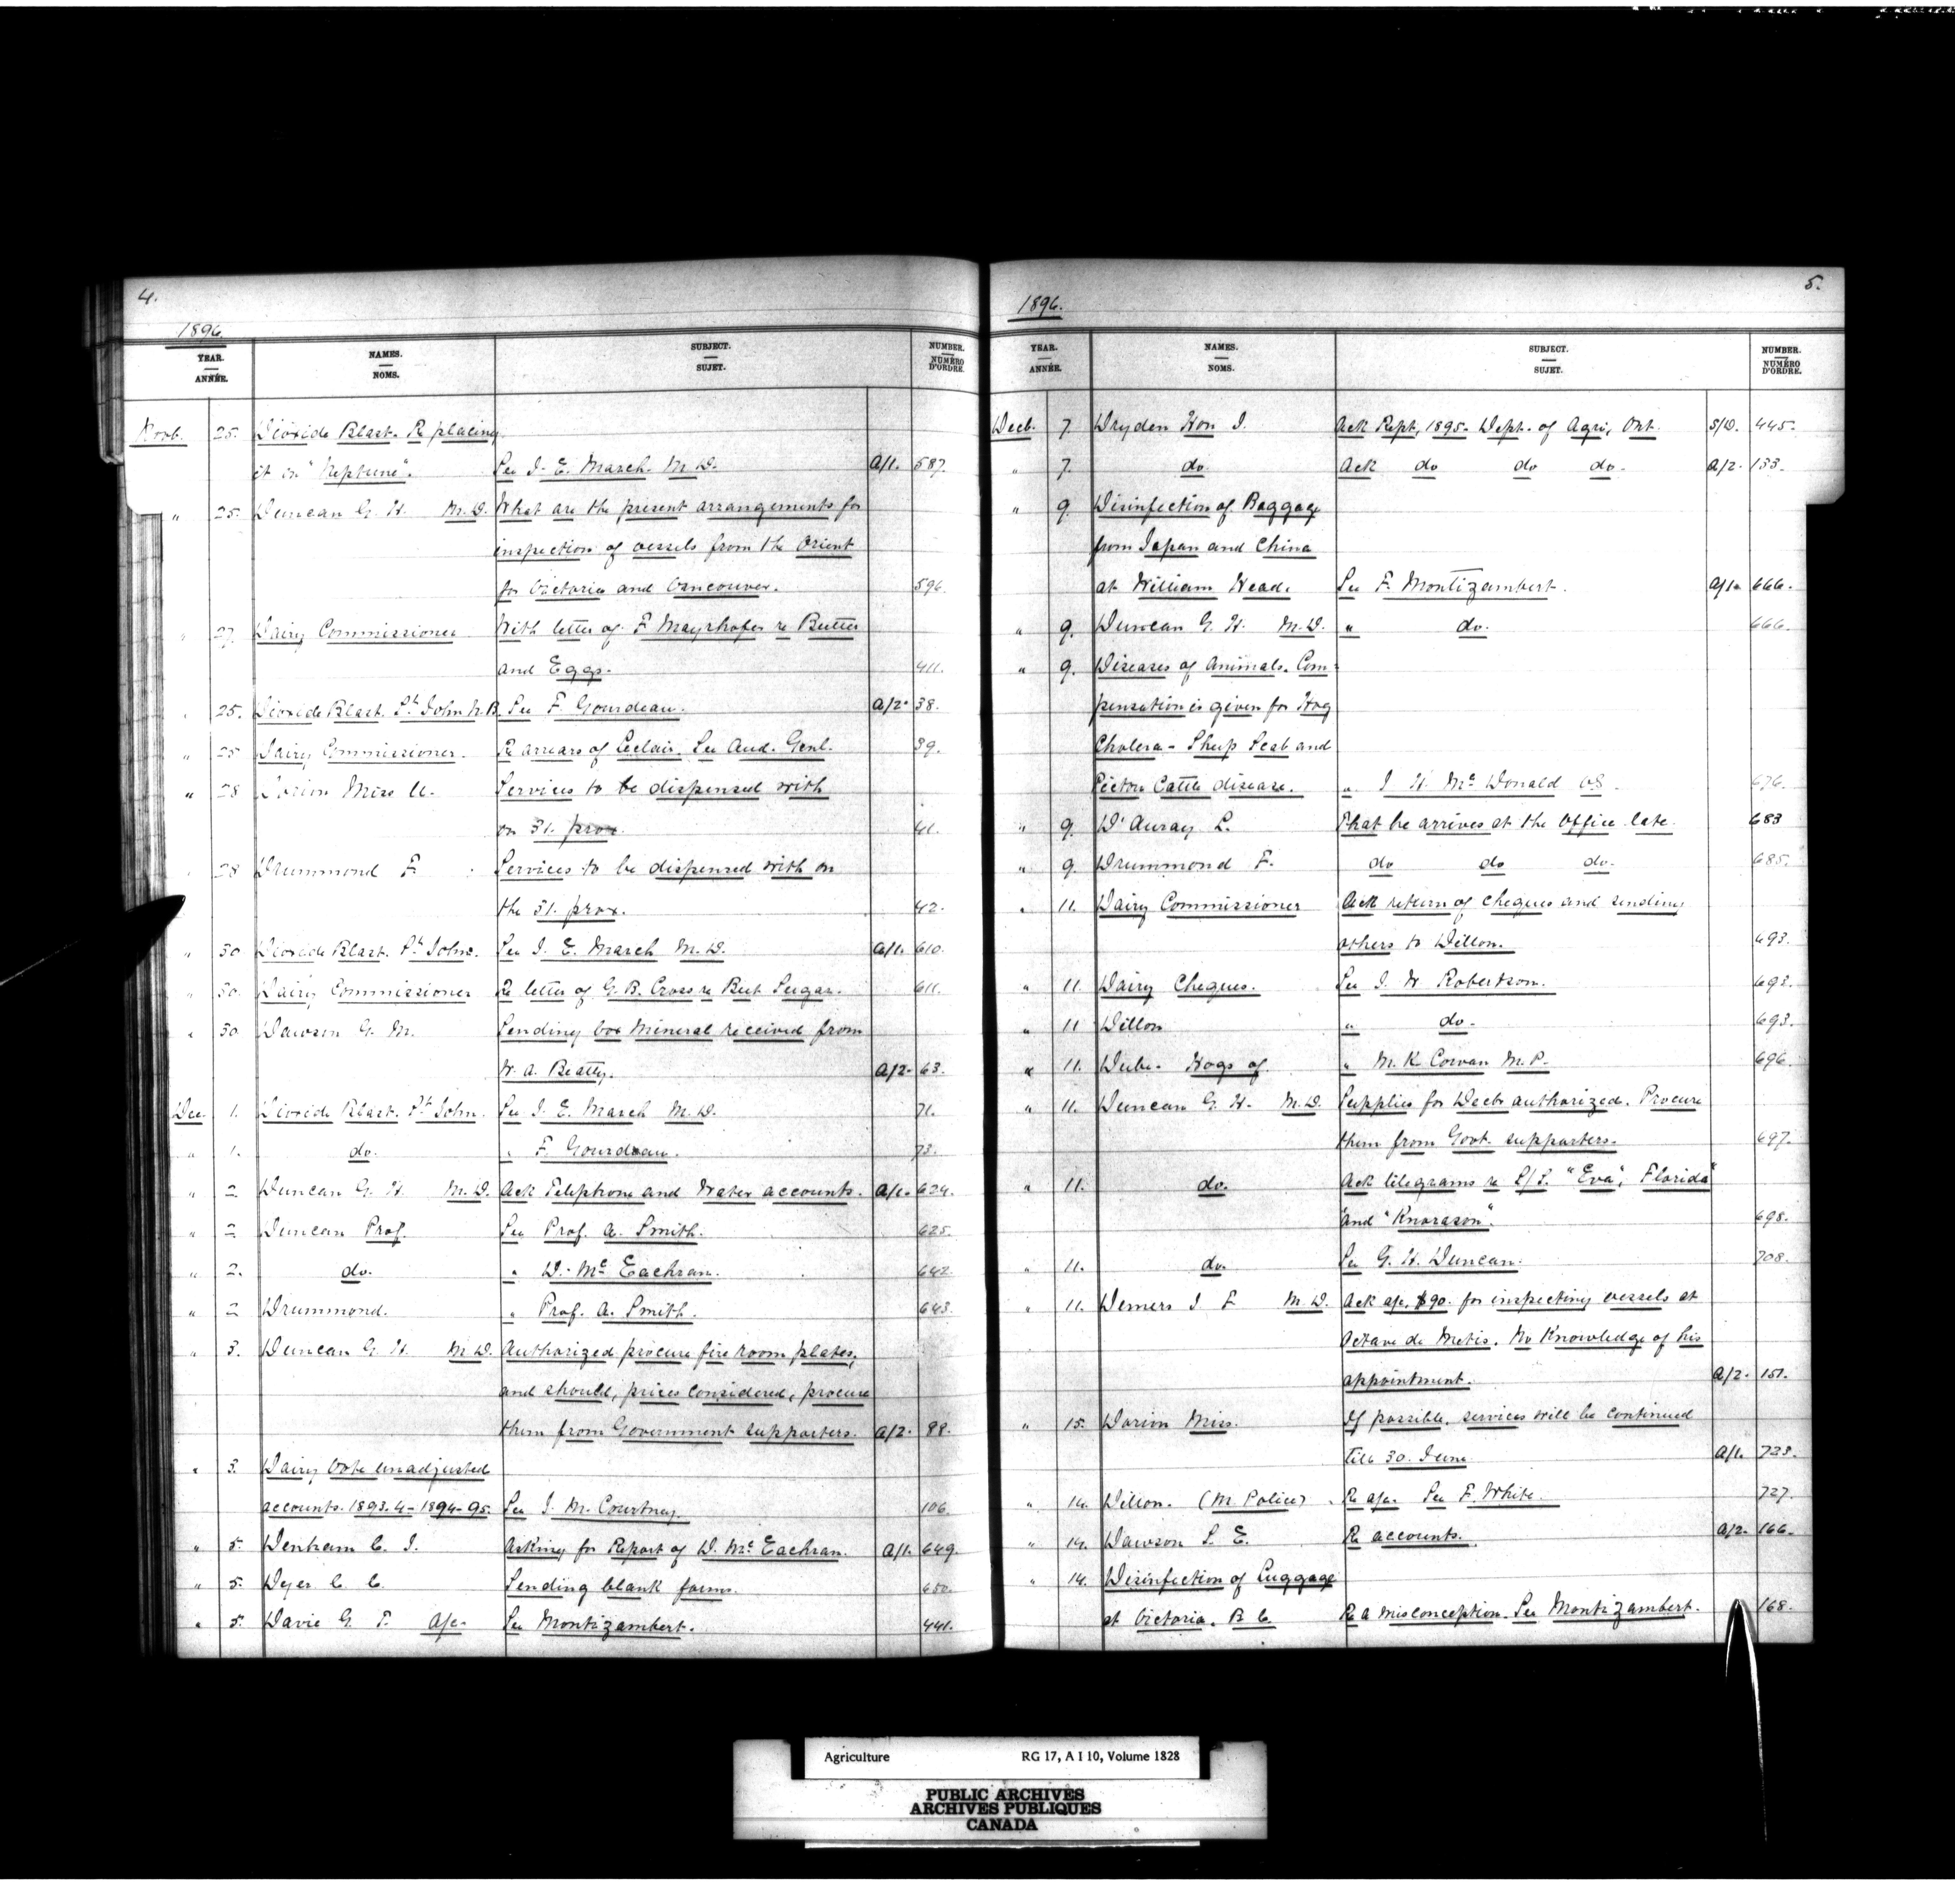 4.
1896
YEAR. NAMES. SUBJECT. NUMBER.
ANNÉE. NOMS. SUJET. NUMÉRO D'ORDRE.
Novb. 25. Dioxide Blast. Re placing
it in "Neptune". See J. E. March. M. D. A/1. 587.
" 25. Duncan G. H. M. D. What are the present arrangements for
inspection of vessels from the Orient
for Victoria and Vancouver. 596.
" 27. Dairy Commissioner With letter of F Mayrhofer re Butter
and Eggs. 411.
" 25. Dioxide Blast. St John N.B. See F. Gourdeau. A/2. 38.
" 25 Dairy Commissioner. Re arrears of Leclair. See Aud. Genl. 39.
" 28 Dorion Miss U. Services to be dispensed with
on 31. prox. 41.
" 28 Drummond F. Services to be dispensed with on
the 31. prox. 42.
" 30 Dioxide Blast. St John. See J. E. March M. D. A/1. 610.
" 30. Dairy Commissioner Re letter of G. B. Cross re Beet Sugar. 611.
" 30 Dawson G. M. Sending box Mineral received from
W. A. Beatty. A/2. 63.
Dec. 1. Dioxide Blast. St John. See J. E. March M. D. 71.
" 1. do. " F. Gourdeau. 73.
" 2 Duncan G. H. M. D. Ack Telephone and Water accounts. A/1. 624.
" 2 Duncan Prof. See Prof. A. Smith. 625.
" 2. do. " D. Mc Eachran. 642.
" 2 Drummond. " Prof. A. Smith. 643.
" 3. Duncan G. H. M. D. Authorized procure fire room plates,
and should, prices considered, procure
them from Government supporters. A/2. 88.
" 3. Dairy Vote unadjusted
accounts. 1893.4 - 1894-95. See J. M. Courtney. 106.
" 5. Denham C. J. Asking for Report of D. Mc Eachran. A/1. 649.
" 5. Dyer C. C. Sending blank forms. 650.
" 5. Davie G. T. A/c. See Montizambert. 441.
5.
1896.
YEAR. NAMES. SUBJECT. NUMBER.
ANNÉE. NOMS. SUJET. NUMÉRO D'ORDRE.
Decb. 7. Dryden Hon J. Ack Rept, 1895. Dept. of Agri, Ont. S/D. 445.
" 7. do. Ack do do do. A/2. 133.
" 9. Disinfection of Baggage
from Japan and China
at William Head. See F. Montizambert. A/1. 666.
" 9. Duncan G. H. M. D. " do. 666.
" 9. Diseases of Animals. Com-
pensation is given for Hog
Cholera - Sheep Scab and
Pictou Cattle disease. " J H. Mc Donald VS. 676.
" 9. D'Auray L. That he arrives at the office late. 683
" 9. Drummond F. do do do. 685.
" 11. Dairy Commissioner Ack return of cheques and sending
others to Dillon. 693.
" 11. Dairy Cheques. See J. W Robertson. 693.
" 11 Dillon " do. 693.
" 11. Dube. Hogs of " M. K Cowan M. P. 696.
" 11. Duncan G. H. M. D. Supplies for Decb authorized. Procure
them from Govt. supporters. 697.
" 11. do. Ack telegrams re S/S. "Eva", Florida"
and "Knorason". 698.
" 11. do. See G. H. Duncan. 708.
" 11. Demers J F M. D. Ack a/c, $90. for inspecting vessels at
Octave de Metis. No Knowledge of his
appointment. A/2. 151.
" 15. Dorion Miss. If possible, services will be continued
till 30. June A/1. 723.
" 14. Dillon. (M. Police) Re a/c. See F. White. 727.
" 14. Dawson S. E. Re accounts. A/2. 166.
" 14. Disinfection of Luggage
at Victoria. B. C. Re a misconception. See Montizambert. 168.
Agriculture RG 17, A I 10, Volume 1828
PUBLIC ARCHIVES
ARCHIVES PUBLIQUES
CANADA